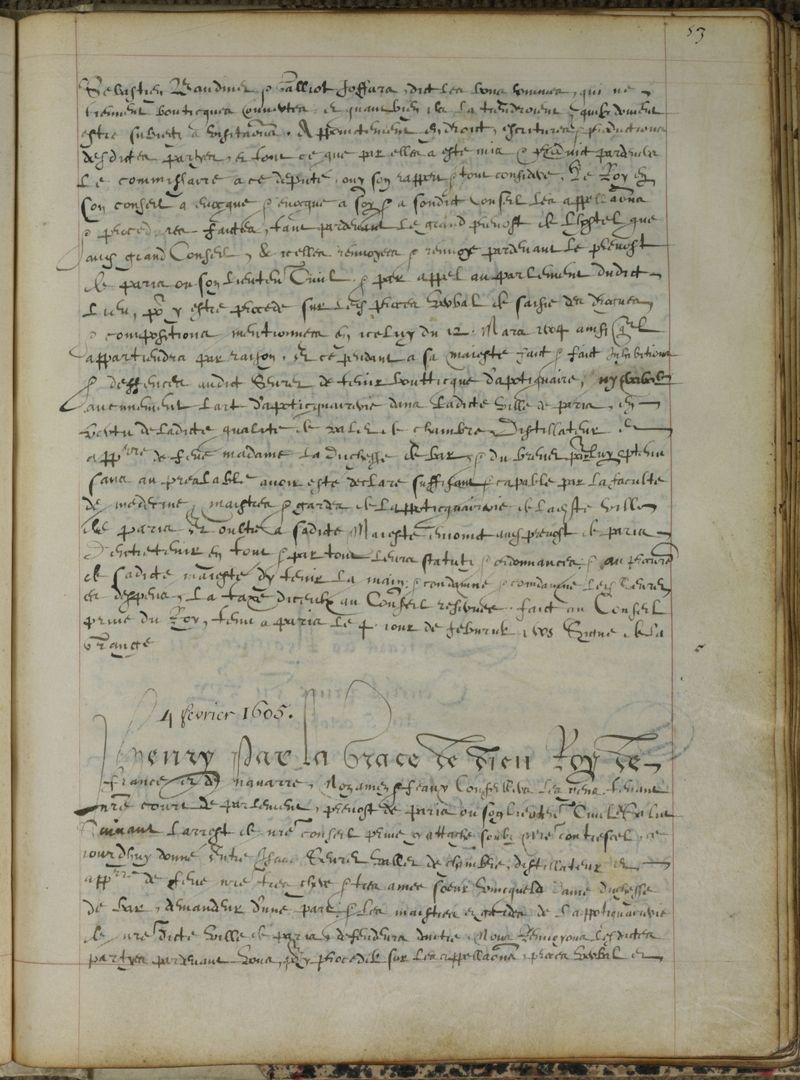 53
Sebastien Baudinet & Balliot Joffara, dict les bons hommes, qui ne
tiennent bouticques ouvertes, et quant bien ilz la tiendroient
estre subiect a visitaõns. Appointement en droit, escritures, productions
desdictes partyes, et tout ce que par elles a esté mis & produit pardevers
Le commissaire a ce deputé, ouy son rapport & tout consideré, Le Roy en
son conseil a evocque & evocque a soy & a sondict Conseil les appellaõns
& procedures faictes, tant pardevant le grand prevost de l'hostel que
aud. grand Conseil, & icelles renvoyees & renvoye pardevant le prevost
de paris ou son lieuten Civil & par appel au parlement dudict
Lieu, po.r y estre procedé sur les procès verbal de saisie des drogues
& compositions mentionnees en iceluy du 12. Mars 1604 ainsi qu'il
appartiendra par raison. Et cependant a sa maiesté faict & fait Inhibitions
& deffences audict Geurer de tenir bouticque d'apotiquaire, ny
aucunement l'art d'apoticquairerie dans ladicte ville de paris, en
vertu de ladicte qualité de valet de chambre, Distillateur et
app.rre de feue madame la Duchesse de bar, & du brevet par luy obtenu
sans au prealable avoir esté declaré suffisant & capable par la faculté
de medecine, maistres & gardes de l'appoticquairerie de ladicte ville
de paris. Et oultre a sadicte Maiesté audict prevost de paris
D'entretenir en tout & par tout leurs statuts & ordonnances, & au procureur
de sadicte maiesté d'y tenir la main, & condamné & condamne led. Geurer
es despens, la taxe d'iceulx au Conseil reservée. fait au Conseil
privé du Roy, tenu a paris le 4. iour de febvrier 1605 Signé de la
Grange
4 fevrier 1605.
Henry par la Grace de dieu Roy de
france et de navarre, Noz amez & feaux Conseillers les gens tenans
nre court de parlement, prevost de paris ou son lieuten Civil, Salut
Suivant l'arrest de nre conseil privé cy attaché soubz nre contrescel, ce
iourdhuy donné, entre Isaac Geurer vallet de chambre, distillateur et
app.rre de feue nre tres chere & tres amee soeur unicque la dame duchesse
de bar, demandeur d'une part, & les maistres et gardes de l'appotiquairerie
de nre dicte ville de paris deffendeurs d'autre. Nous renvoyons lesdictes
partyes pardevant vous, po.r y proceder sur les appellaõns, procès verbal et